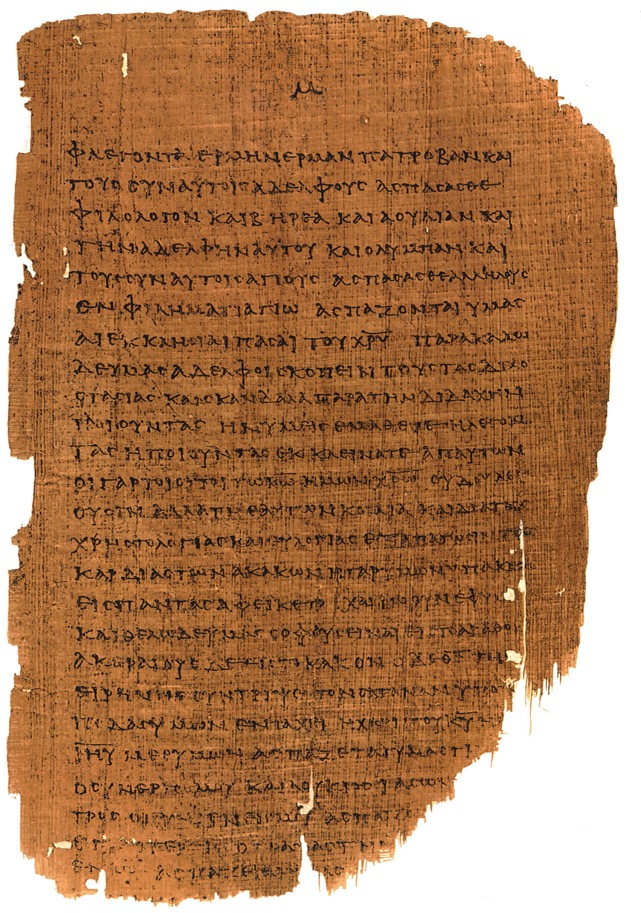 μ
φλεγοντα ερμην ερμαν πατροβαν και
τους συν αυτοις αδελφους ασπασασθε
φιλολογον και βηρεα και αουλιαν και
την αδελφην αυτου και ολυμπαν και
τους συν αυτοις αγιους ασπασασθε αλληλους
εν φιληματι αγιω ασπαζονται υμας
αι εκκλησιαι πασαι του χρυ παρακαλω
δε υμας αδελφοι σκοπειν τους τας διχο
στασιας και σκανδαλα παρα την διδαχην
ην υμεις εμαθετε η λεγον
τας η ποιουντας εκκλεινατε απ αυτων
οι γαρ τοιουτοι τω κω ημων χρω ου δουλευ
ουσιν αλλα τη εαυτων κοιλια και δια της
χρηστολογιας και ευλογιας εξαπατωσιν τας
καρδιας των ακακων η γαρ υμων υπακο
εις παντας αφεικετο χαιρω ουν εφ υμ
και θελω δε υμας σοφους ειναι εις το αγαθο
ακεραιους δε εις το κακον ο δε θς της
ειρηνης συντριψει τον σαταναν υπο
ποδας υμων εν ταχει η χαρις του κυ η
ιηυ μεθ υμων ασπαζεται υμας τι
ο συνεργος μου και λουκιος ιασων
οι συγγενεις μου ασπαζ
ασπαζεται